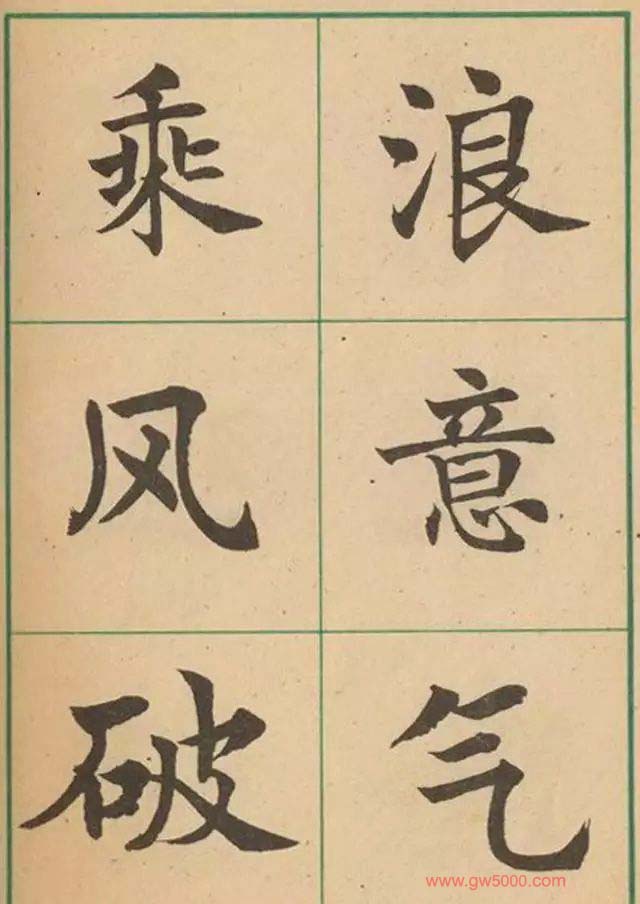 乘风破
浪意气
www.gw5000.com